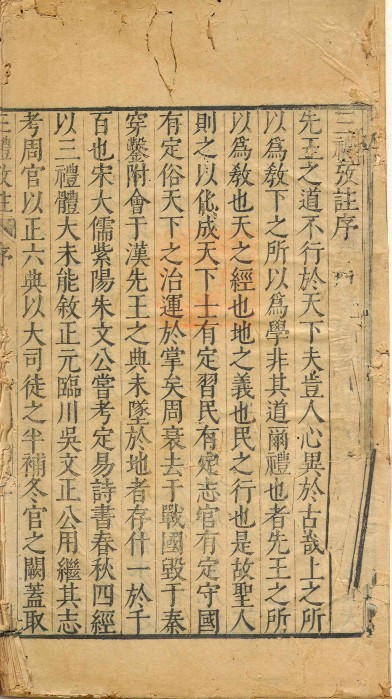 三禮攷註序
先王之道不行於天下夫豈人心異於古哉上之所
以爲敎下之所以爲學非其道爾禮也者先王之所
以爲敎也天之經也地之義也民之行也是故聖人
則之以化成天下士有定習民有定志官有定守國
有定俗天下之治運於掌矣周衰去于戰國毀于秦
穿鑿附會于漢先王之典未墜於地者存什一於千
百也宋大儒紫陽朱文公嘗考定易詩書春秋四經
以三禮體大未能敘正元臨川吳文正公用繼其志
考周官以正六典以大司徒之半補冬官之闕蓋取
三禮攷註 序